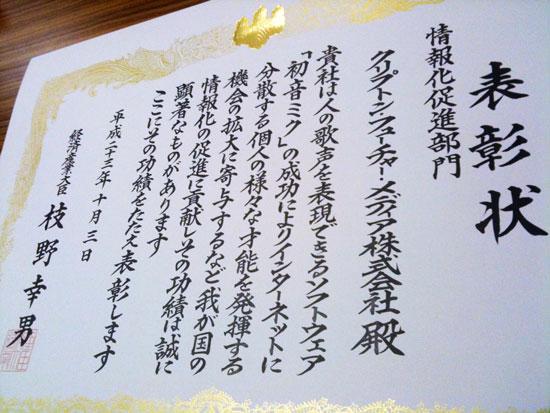 表彰状
情報化促進部門
クリプトン・フューチャー・メディア株式会社殿
貴社は人の歌声を表現できるソフトウェア
「初音ミク」の成功によりインターネットに
分散する個人の様々な才能を発揮する
機会の拡大に寄与するなど我が国の
情報化の促進に貢献しその功績は誠に
顕著なものがあります
ここにその功績をたたえ表彰します
平成二十三年十月三日
経済産業大臣
枝野幸男